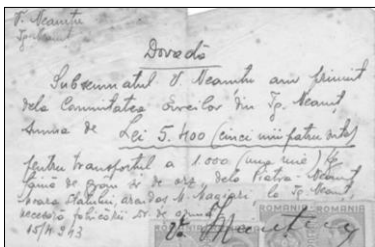 V. Neamțu
Tg. Neamț
Dovadă
Subsemnatul V. Neamțu am primit
dela Comunitatea Evreilor din Tg. Neamț,
suma de Lei 5.400 (cinci mii patru sute)
pentru transportul a 1.000 (una mie) kg
făină de de orz dela Piatra-Neamț
moara Statului, M. la Tg. Neamț,
necesară
15/4 943
ROMANIA ROMANIA